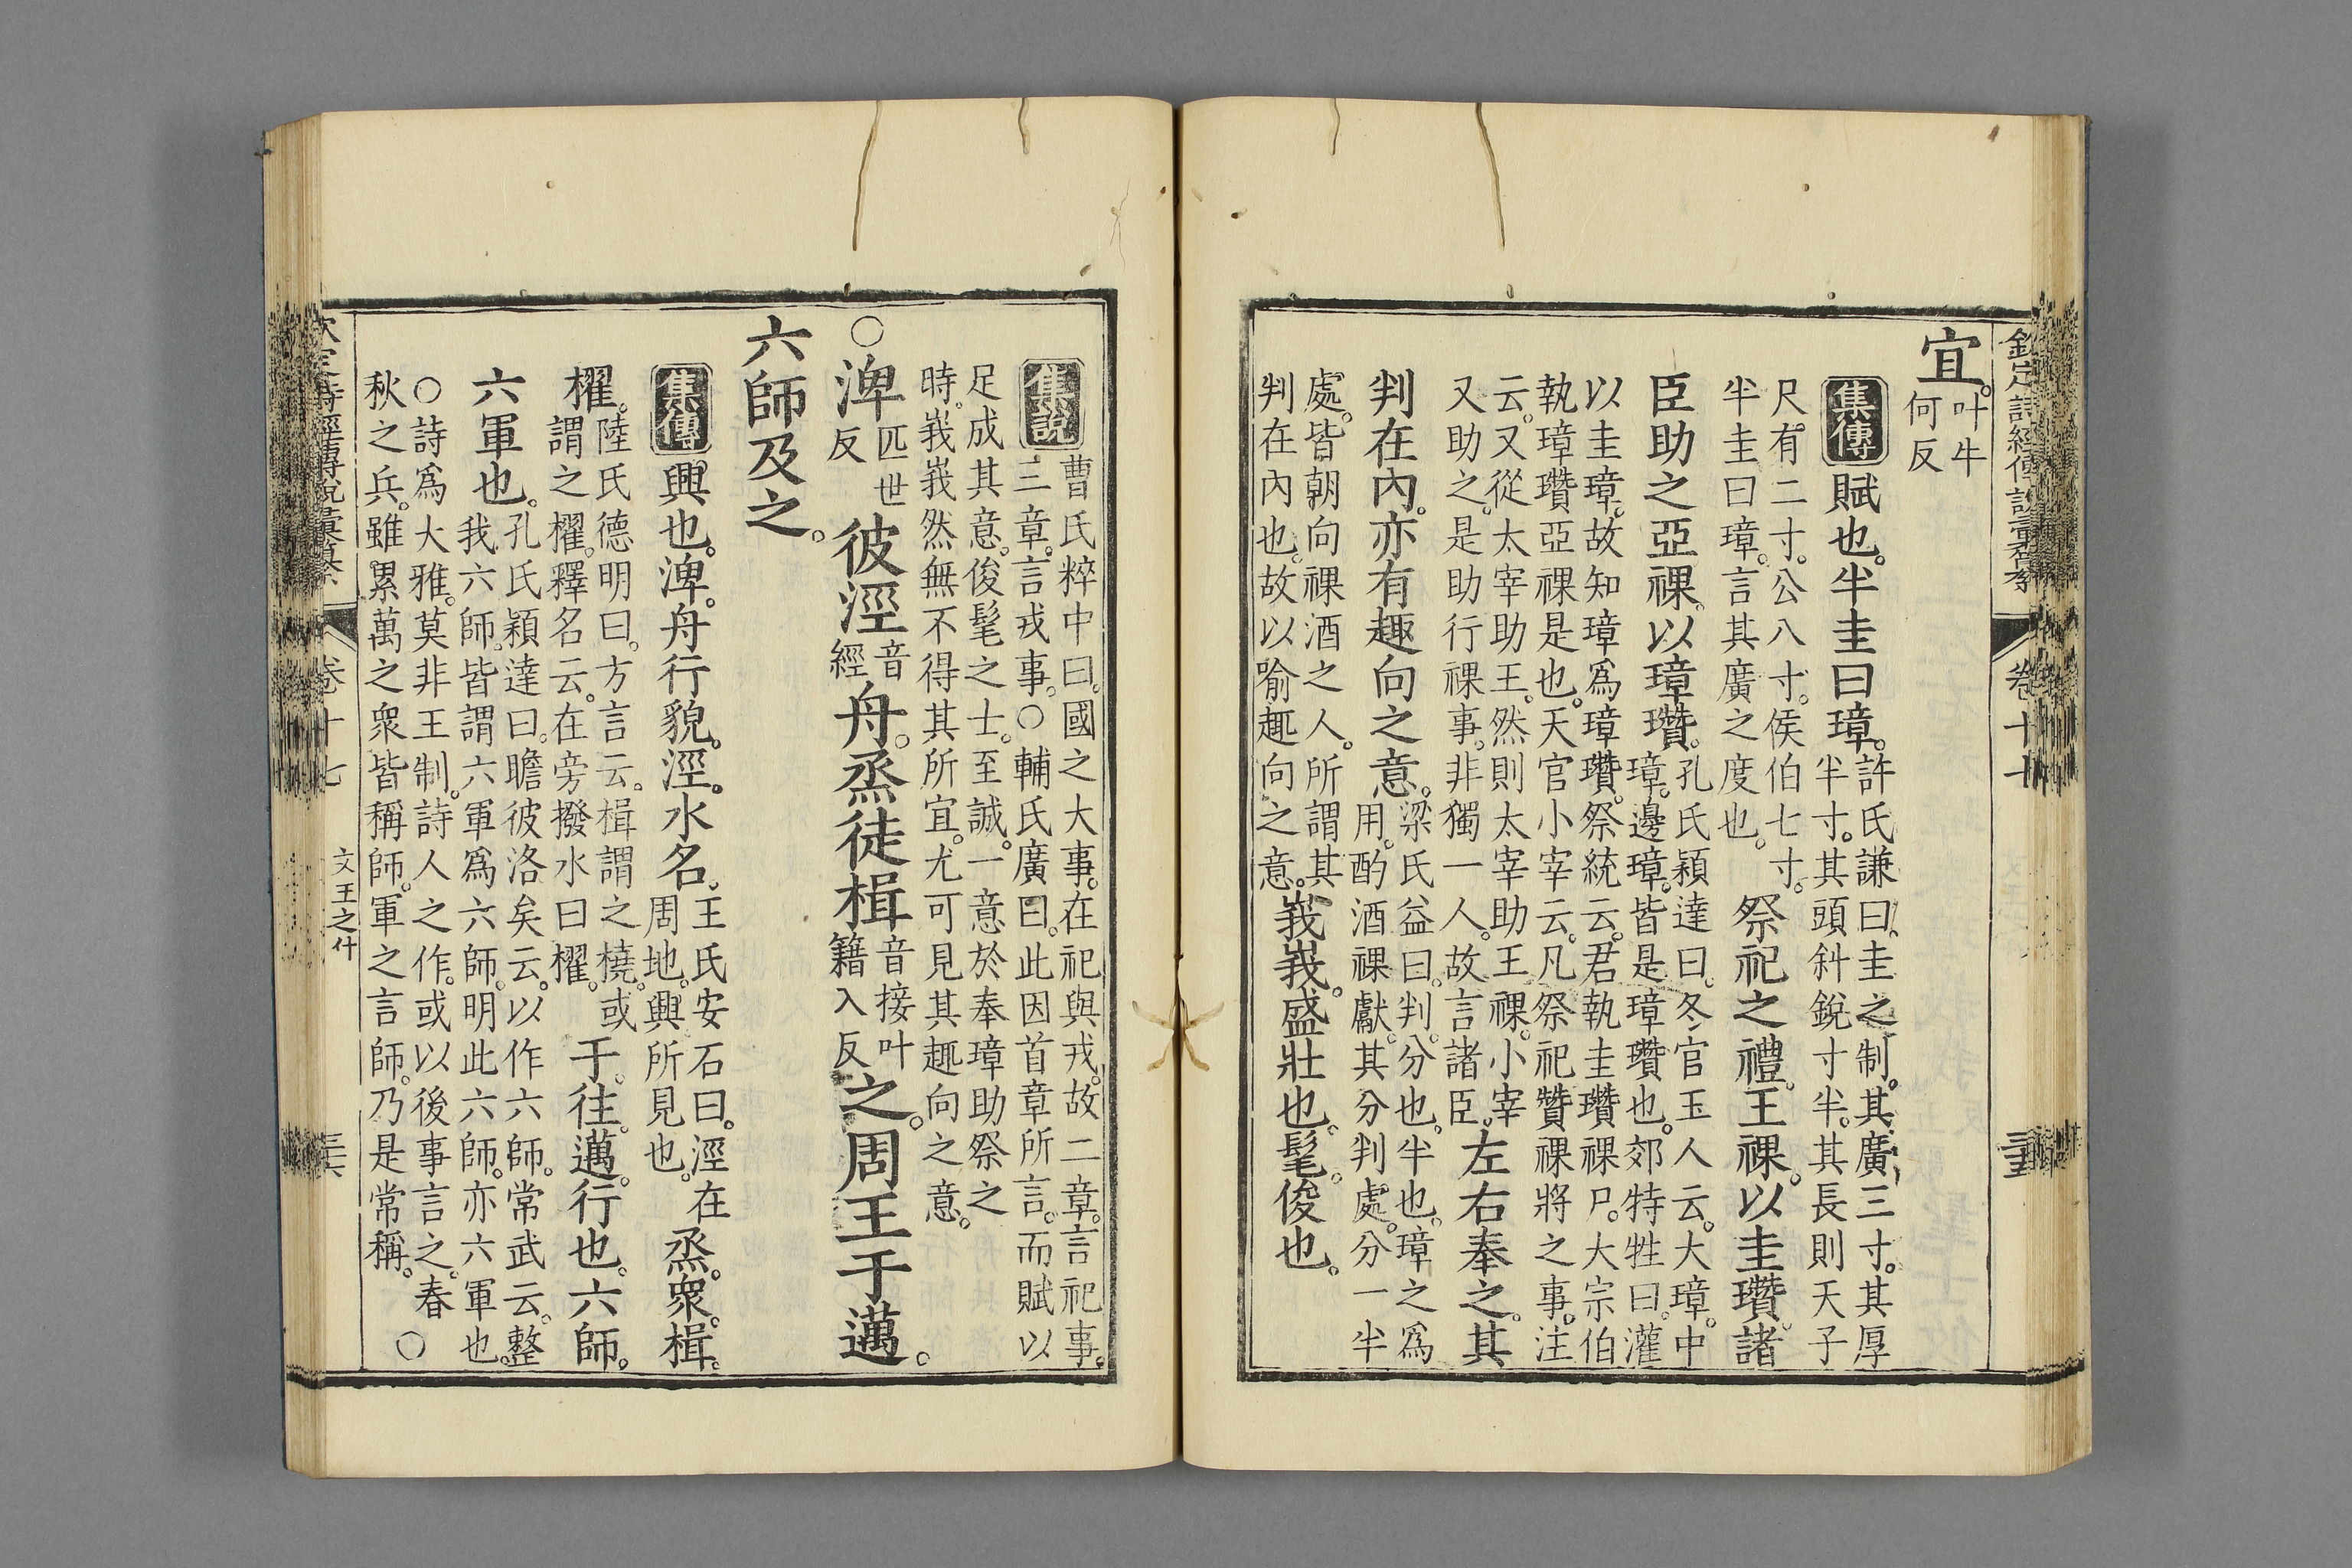 欽定詩經傳說彙纂 卷十七 三五
宜。叶牛何反
集傳 賦也。半圭曰璋。許氏謙曰。圭之制。其廣三寸。其厚半寸。其頭斜銳寸半。其長則天子
尺有二寸。公八寸。侯伯七寸。半圭曰璋。言其廣之度也。祭祀之禮。王祼。以圭瓚。諸
臣助之亞祼。以璋瓚。孔氏穎達曰。冬官玉人云。大璋。中璋。邊璋。皆是璋瓚也。郊特牲曰。灌
以圭璋。故知璋爲璋瓚。祭統云。君執圭瓚祼尸。大宗伯執璋瓚亞祼是也。天官小宰云。凡祭祀贊祼將之事。注
云。又從太宰助王。然則太宰助王祼。小宰又助之。是助行祼事。非獨一人。故言諸臣。左右奉之。其
判在內。亦有趣向之意。梁氏益曰。判。分也。半也。璋之爲用。酌酒祼獻。其分判處。分一半
處。皆朝向祼酒之人。所謂其判在內也。故以喻趣向之意。峩峩。盛壯也。髦。俊也。
集說 曹氏粹中曰。國之大事。在祀與戎。故二章。言祀事。三章。言戎事。○輔氏廣曰。此因首章所言。而賦以
足成其意。俊髦之士。至誠一意於奉璋助祭之時。峩峩然無不得其所宜。尤可見其趣向之意。
○淠匹世反彼涇音經舟。烝徒楫音接叶籍入反之。周王于邁。
六師及之。
集傳 興也。淠。舟行貌。涇。水名。王氏安石曰。涇在周地。興所見也。烝。衆。楫。
櫂。陸氏德明曰。方言云。楫謂之橈。或謂之櫂。釋名云。在旁撥水曰櫂。于。往。邁。行也。六師。
六軍也。孔氏穎達曰。瞻彼洛矣云。以作六師。常武云。整我六師。皆謂六軍爲六師。明此六師。亦六軍也。
○詩爲大雅。莫非王制。詩人之作。或以後事言之。春秋之兵。雖累萬之衆皆稱師。軍之言師。乃是常稱。○
欽定詩經傳說彙纂 卷十七 文王之什 三六